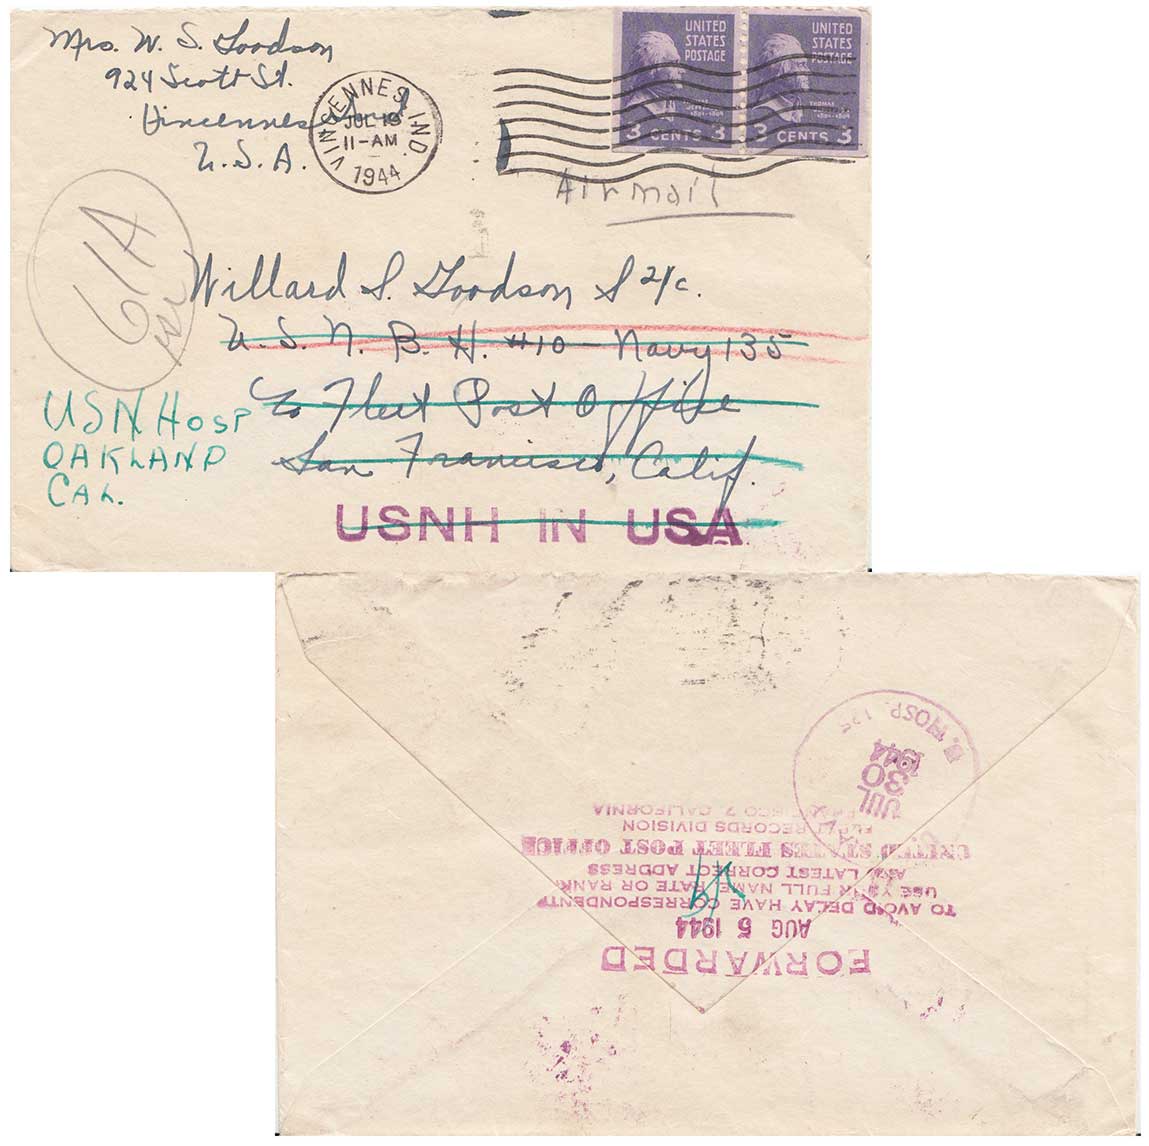 Mrs. W. S. Goodson
924 Scott St.
Vincennes, Ind.
U. S. A.
VINCENNES, IND.
JUL 19
11-AM
1944
UNITED
STATES
POSTAGE
THOMAS
JEFFERSON
1801-1809
3 CENTS 3
UNITED
STATES
POSTAGE
THOMAS
JEFFERSON
1801-1809
3 CENTS 3
Airmail
61A
Willard S. Goodson S 2/c.
U. S. N. B. H. #10 - Navy 135
c/o Fleet Post Office
San Francisco, Calif.
USN HOSP
OAKLAND
CAL.
USNH IN USA
FORWARDED
AUG 5 1944
TO AVOID DELAY HAVE CORRESPONDENTS
USE YOUR FULL NAME, RATE OR RANK
AND LATEST CORRECT ADDRESS
UNITED STATES FLEET POST OFFICE
FLEET RECORDS DIVISION
FRANCISCO 2, CALIFORNIA
B. HOSP. 135
JUL
30
1944